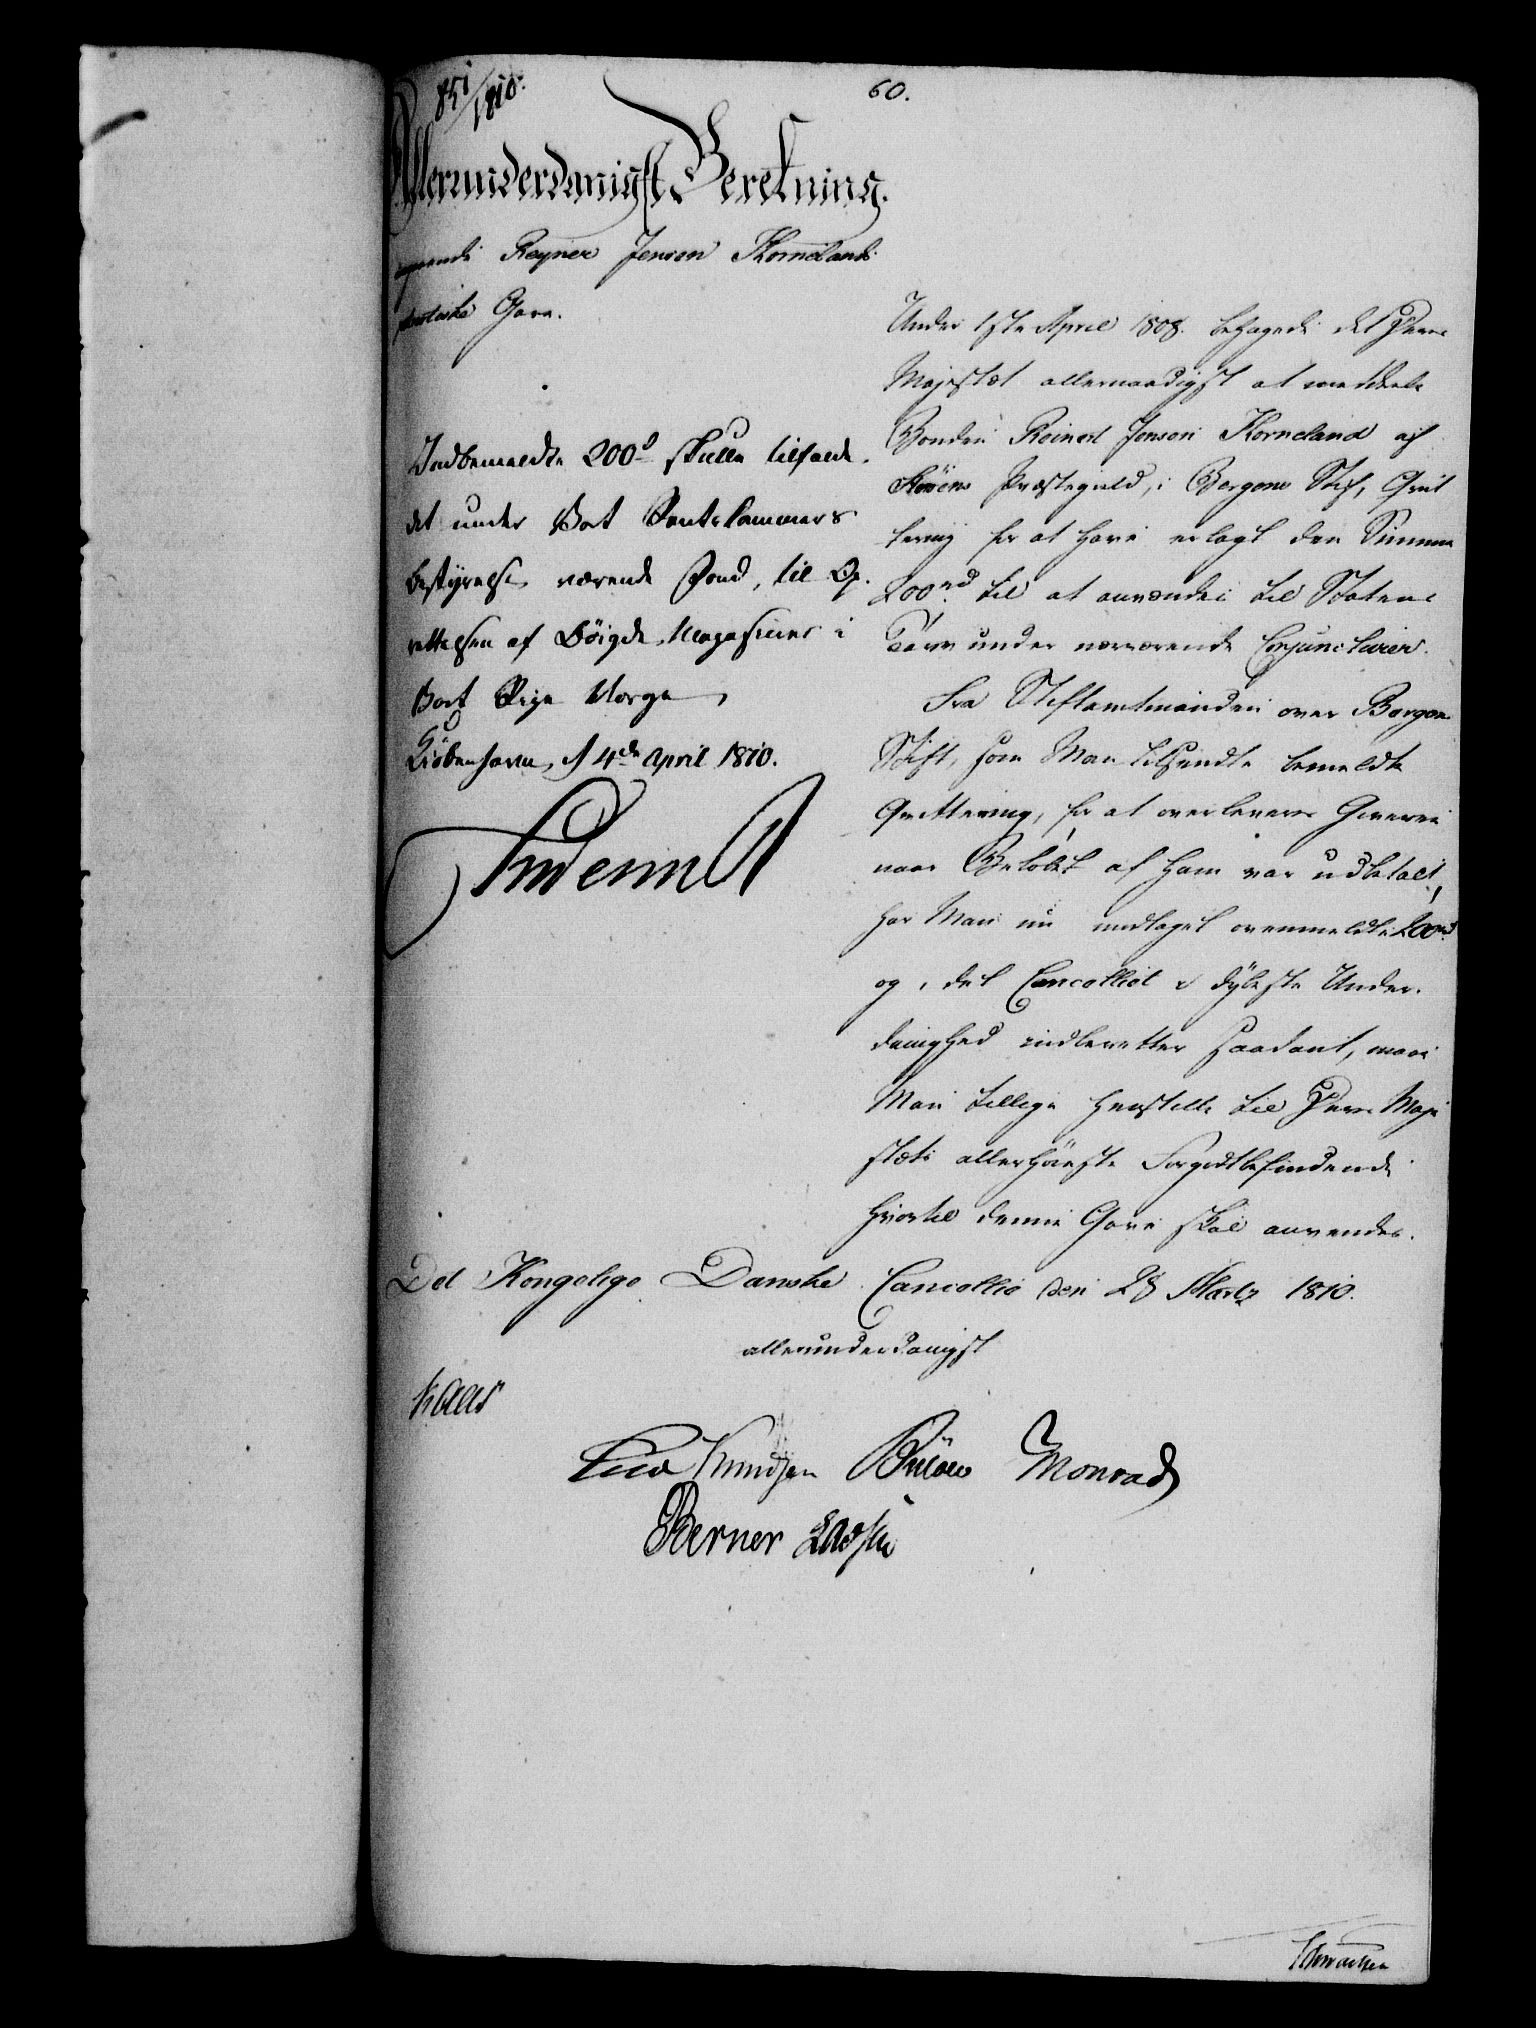 851/1810.
60.
Allerunderdanigst Beretning.
angaaende Reyner Jensen Kornelands
patriotiske Gave.
Under 1ste April 1808. behagede det Deres
Majestæt allernaadigst at meddele
Bonden Reinert Jensen Korneland af
Præstegield, i Bergens Stift, Qvit
tering for at have erlagt den Summa
200 rd. til at anvendes til Statens
Tarv under nærværende Conjuncturer.
Fra Stiftamtmanden over Bergens
Stift, som Man tilsendte bemeldte
Qvittering, for at overlevere Giveren
naar Beløbet af ham var udbetalt,
har Man nu modtaget ovenmeldte 200 rd
og, det Cancelliet i dybeste Under-
danighed indberetter saadant, maae
Man tillige henstille til Deres Maje
stæts allerhøieste Forgodtbefindende
hvortil denne Gave skal anvendes.
Indbemeldte 200 d skulle tilfalde
det under Vort Rentekammers
bestyrelse værende Fond, til Op-
rettelsen af Böigde-Magasiner i
Vort Rige Norge,
Kiöbenhavn, d 4de April 1810.
Frideric R
Det Kongelige Danske Cancellie den 28 Martz 1810.
allerunderdanigst
Kaas
Knudsen Bülow Monrad
Berner Lassen